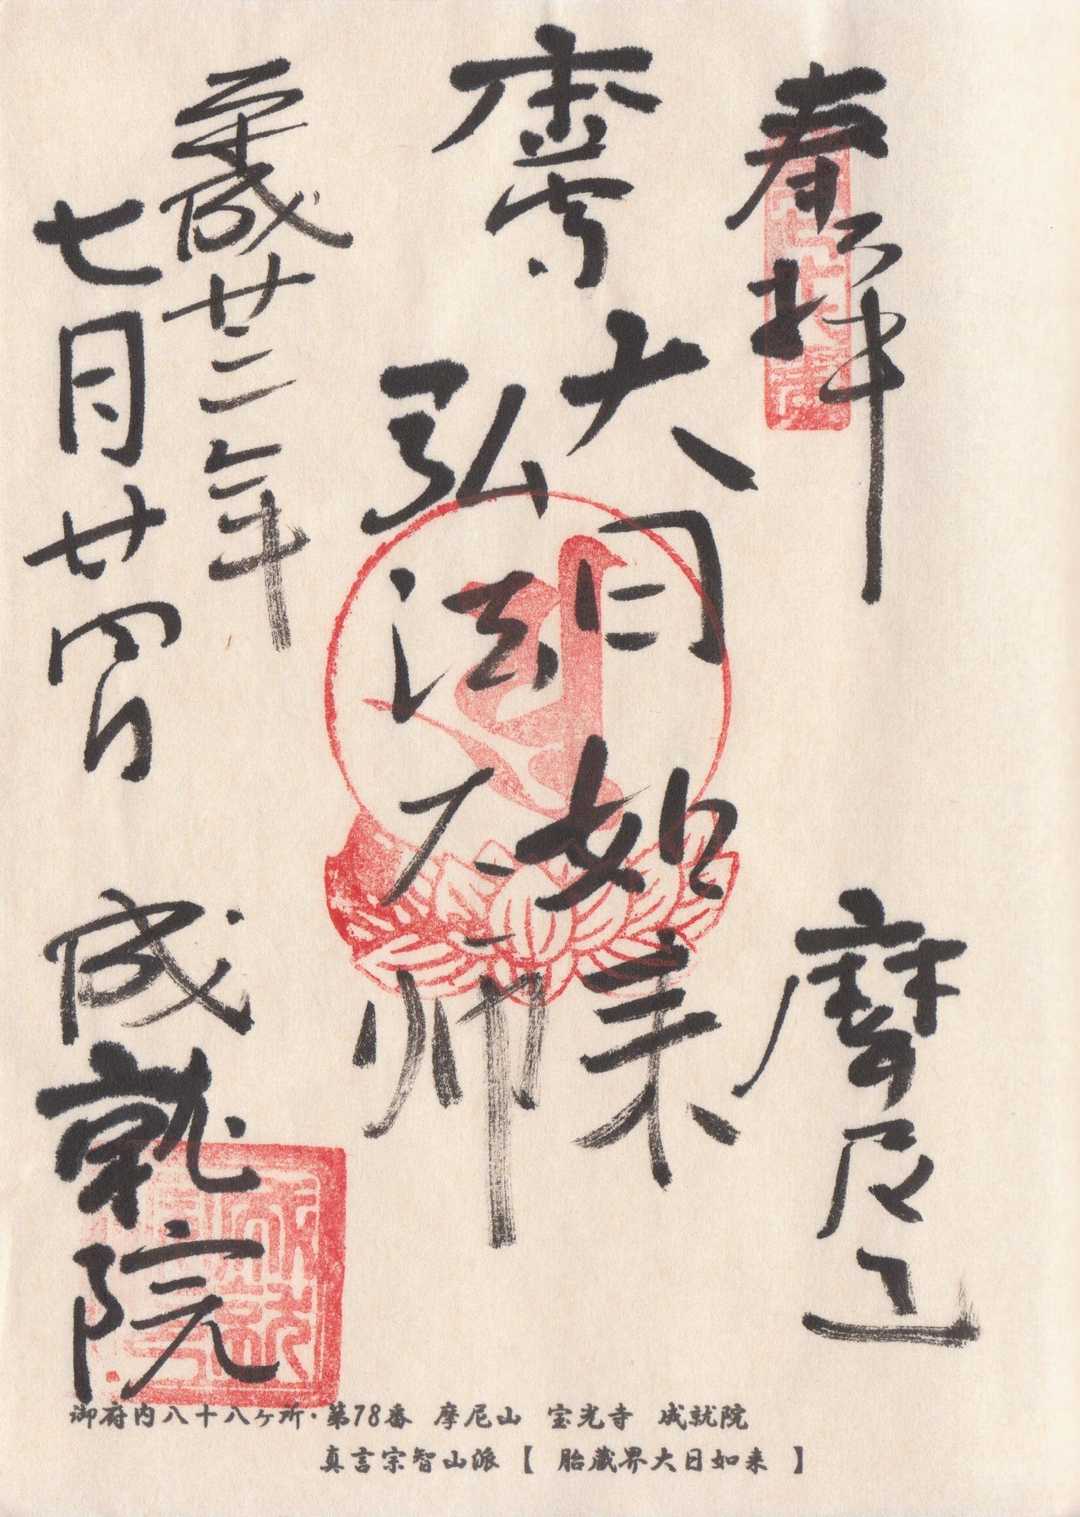 奉拝
摩尼山
本尊 大日如来
弘法大師
平成廿二年
七月廿四日
成就院
御府内八十八ヶ所・第78番 摩尼山 宝光寺 成就院
真言宗智山派【 胎蔵界大日如来 】